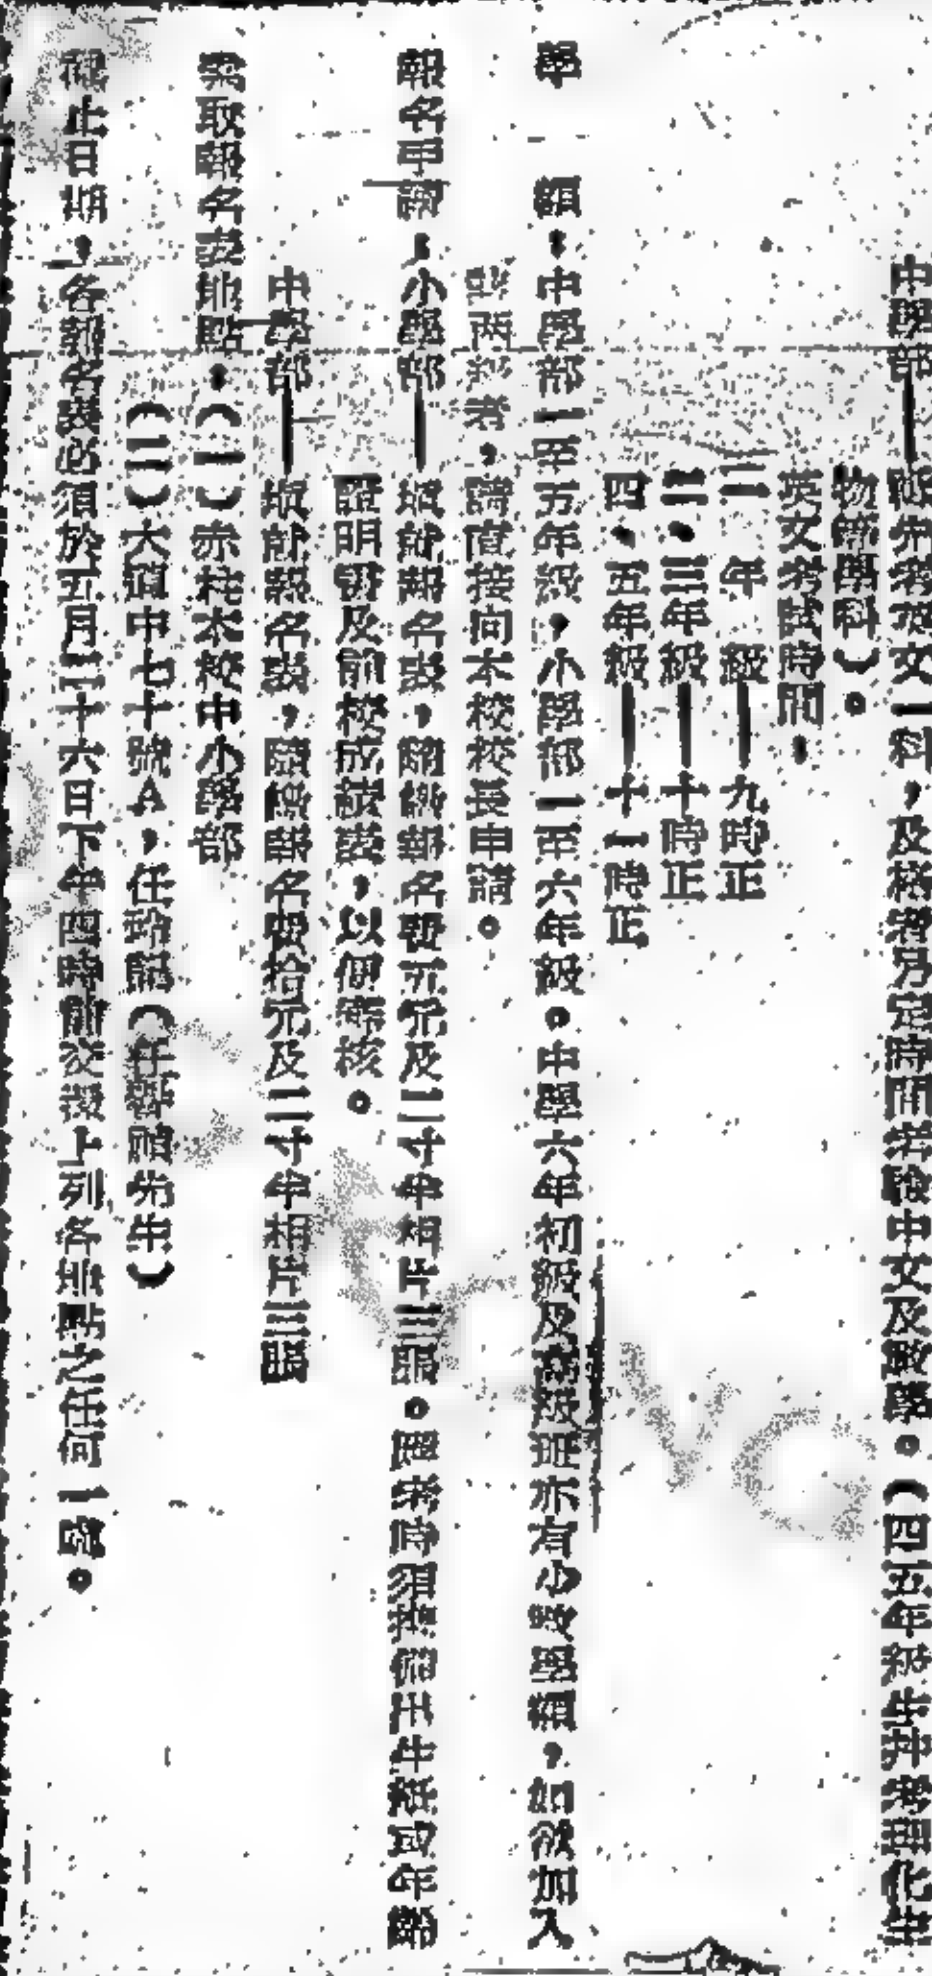 中學部——祇先考英文一科，及格者另定時間考驗中文及數學。（四五年級生幷考理化生
物等學科）。
英文考試時間，
一年級——九時正
二、三年級——十時正
四、五年級——十一時正
學額，中學部一至五年級，小學部一至六年級。中學六年初級及高級班亦有小數學額，如欲加入
兩部者，請直接向本校校長申請。
報名手續，小學部——塡就報名表，隨繳報名費五元及二寸半相片三張。應考時須携備出生紙或年齡
證明書及前校成績表，以便審核。
中學部——塡就報名表，隨繳報名費拾元及二寸半相片三張
索取報名表地點，（一）赤柱本校中小學部
（二）大道中七十號A，任（任先生）
截止日期，各報名表必須於五月二十六日下午四時前交還上列各地點之任何一處。